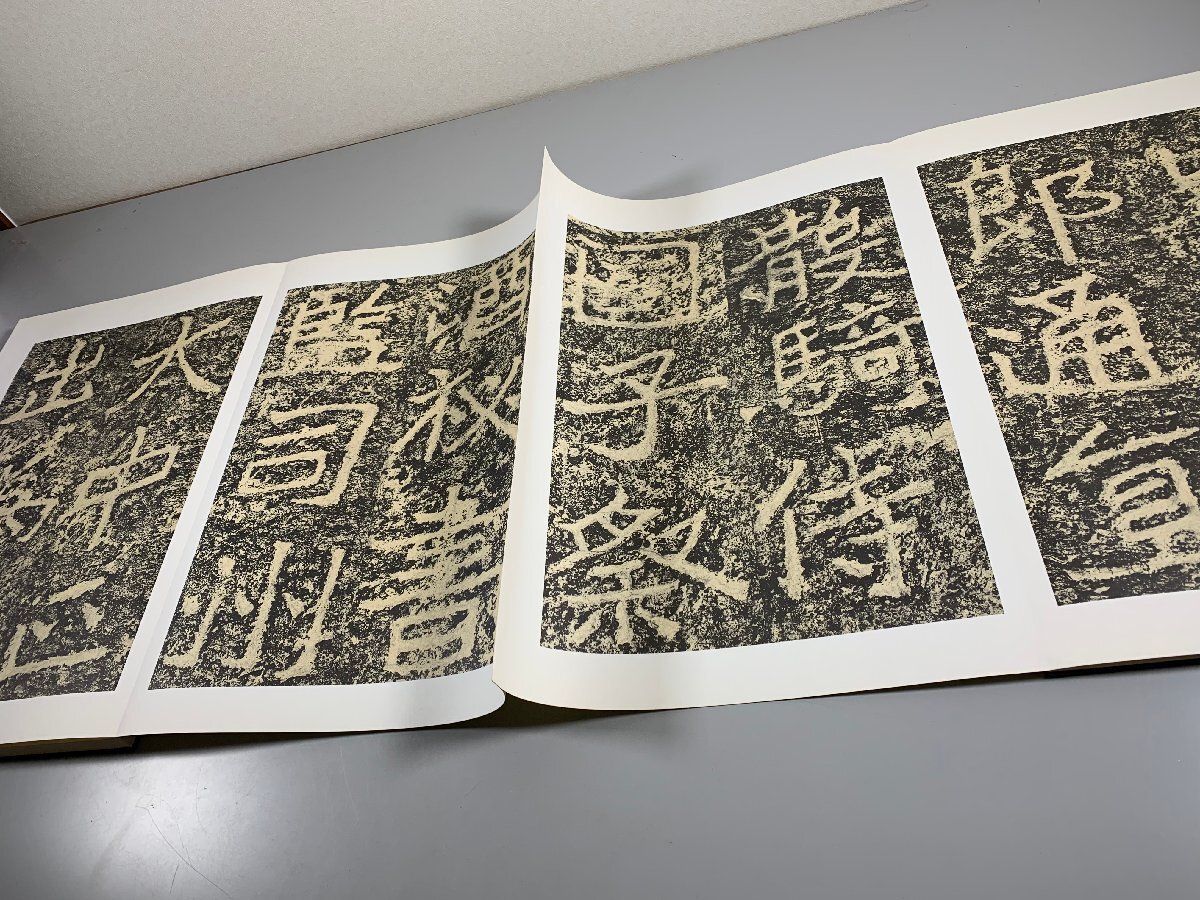 郎通直
散騎侍
國子祭
酒秘書
監司州
大中正
出